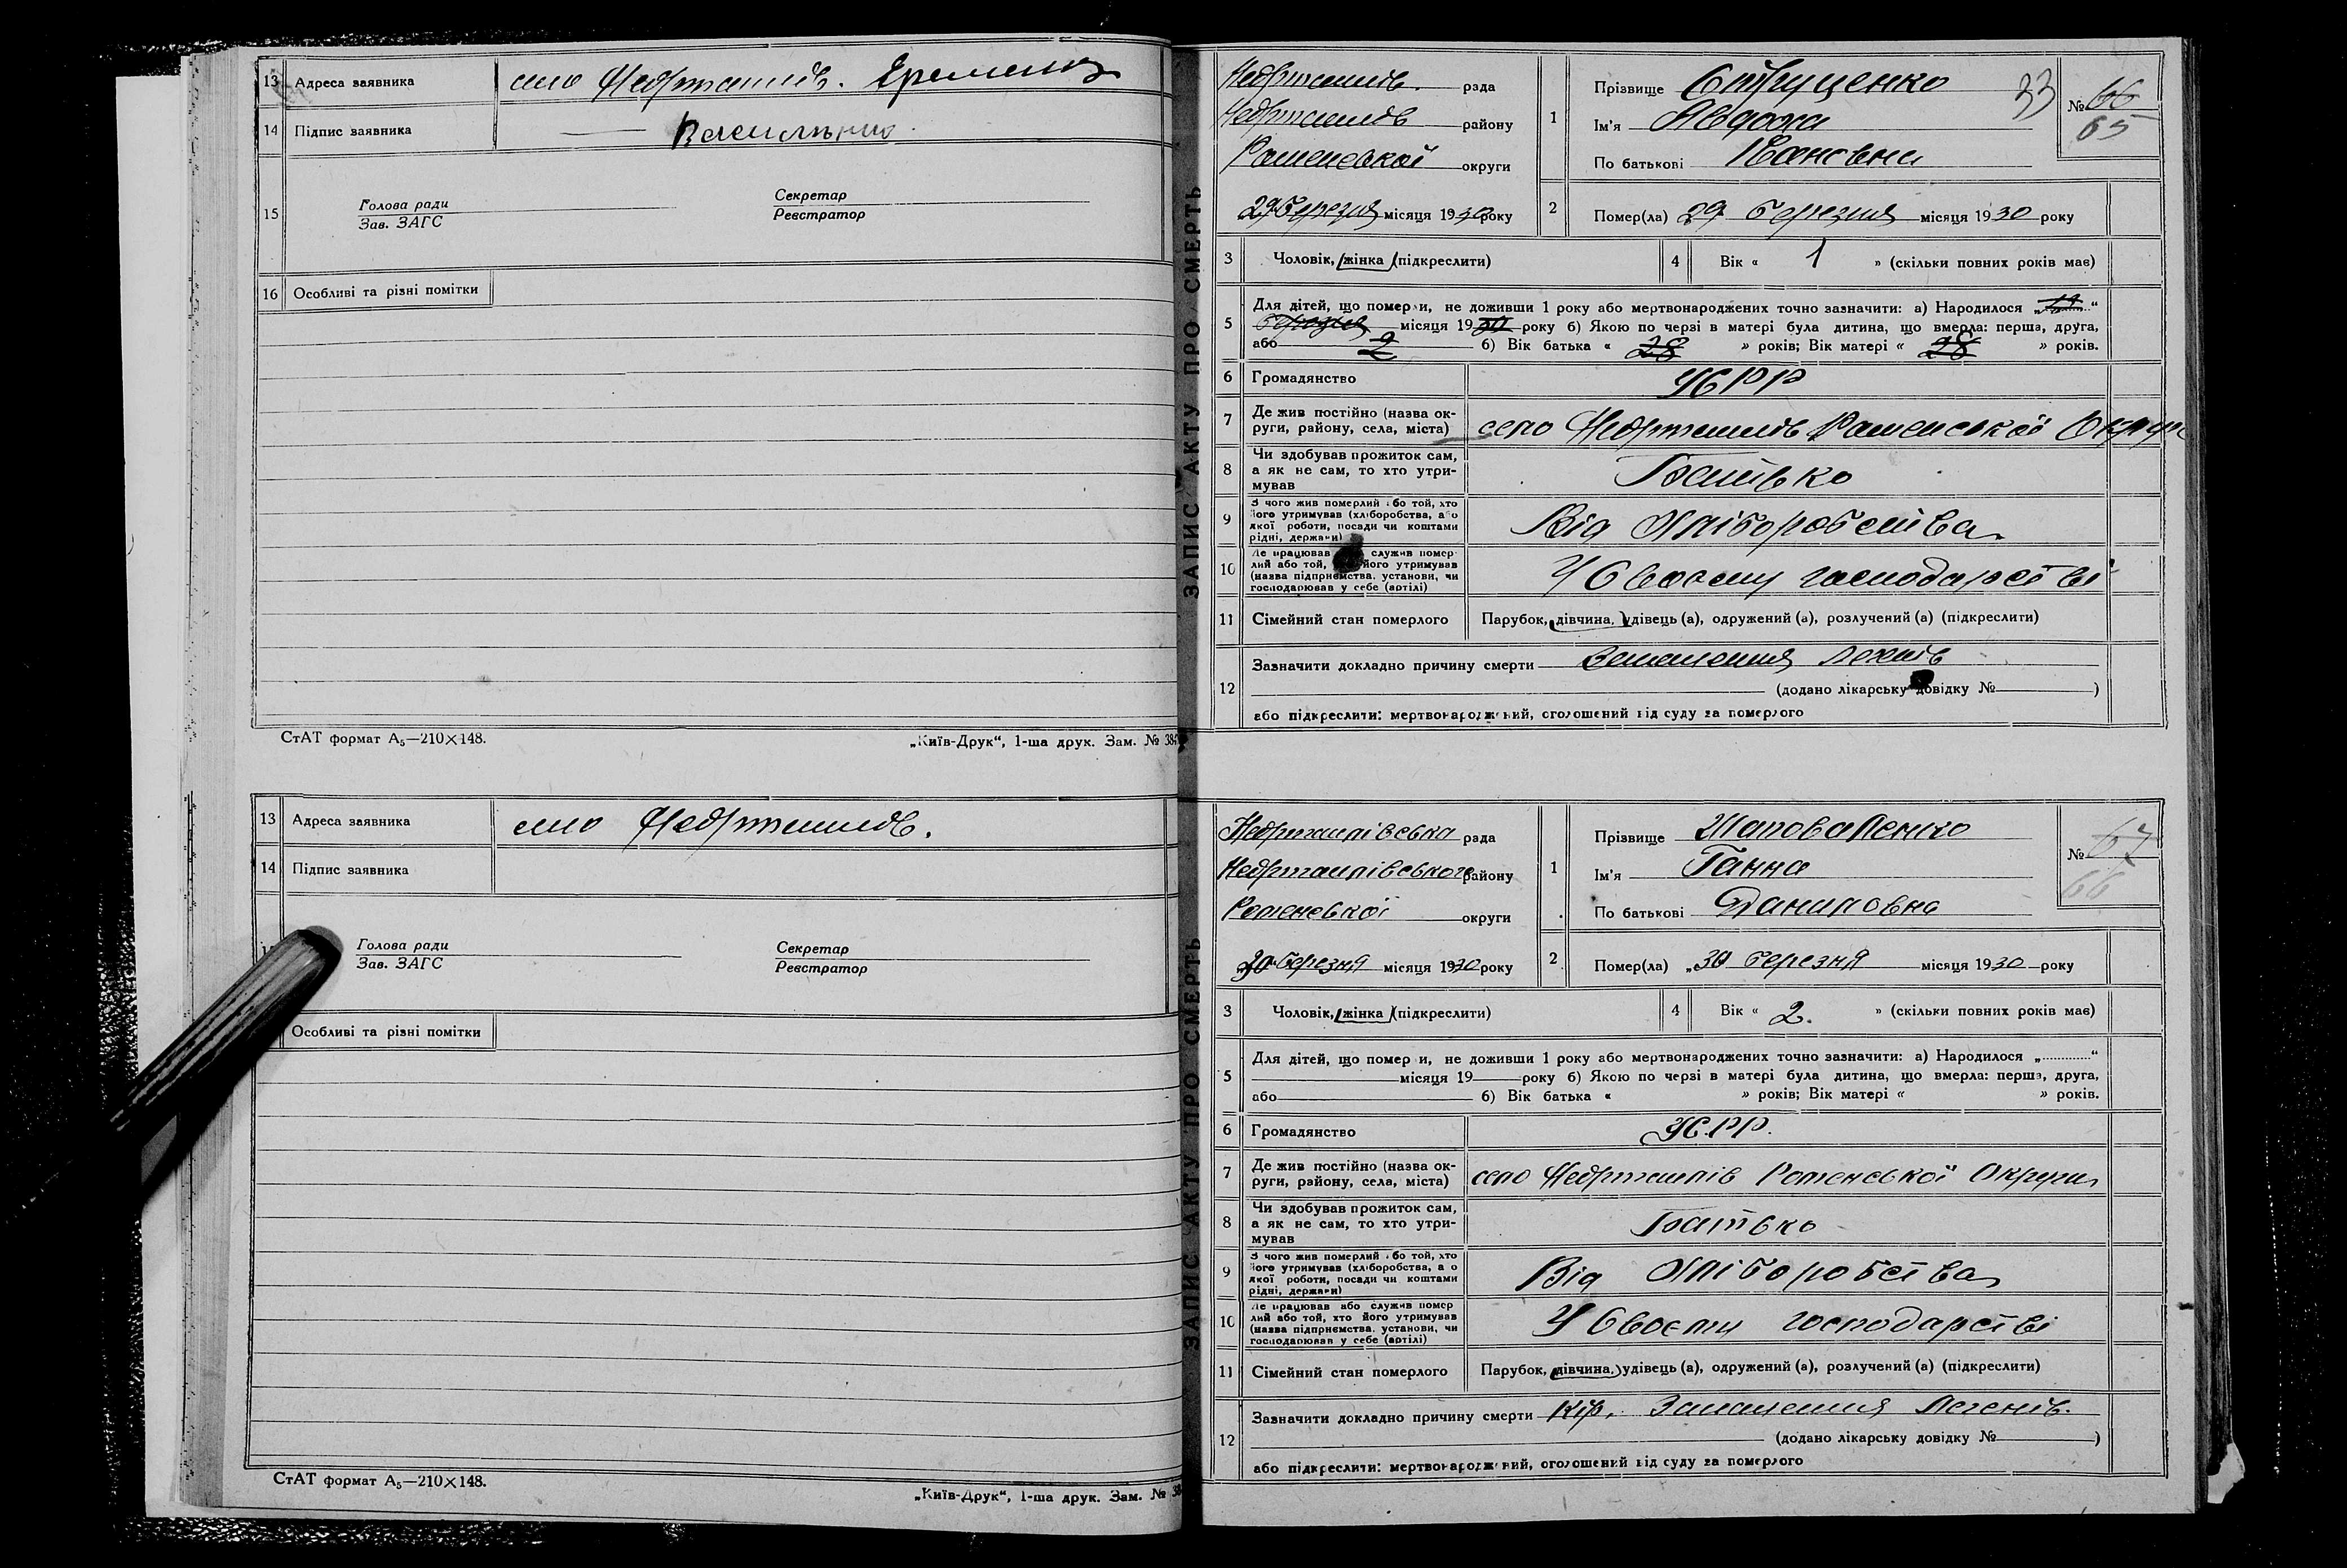 13 Адреса заявника село Недригайлів. Яременка
14 Підпис заявника
15 Голова ради
Зав. ЗАГС
Секретар
Реєстратор
16 Особливі та різні помітки
СтАТ формат А5—210×148.
„Київ-Друк“, 1-ша друк. Зам. № 38
13 Адреса заявника село Недригайлів.
14 Підпис заявника
Голова ради
Зав. ЗАГС
Секретар
Реєстратор
Особливі та різні помітки
СтАТ формат А5—210×148.
„Київ-Друк“, 1-ша друк. Зам. № 38
ЗАПИС АКТУ ПРО СМЕРТЬ
Недригайлів. рада
Недригайлів району
Роменської округи
29 березня місяця 1930 року
1 Прізвище Стрященко 33
Ім'я Авдоха
По батькові Івановна
№ 66
65
2 Помер(ла) 29 березня місяця 1930 року
3 Чоловік, жінка (підкреслити)
4 Вік « 1 » (скільки повних років має)
5 Для дітей, що померли, не доживши 1 року або мертвонароджених точно зазначити: а) Народилося „ “
березня місяця 1930 року б) Якою по черзі в матері була дитина, що вмерла: перша, друга,
або 2 б) Вік батька « 28 » років; Вік матері « 28 » років.
6 Громадянство УСРР
7 Де жив постійно (назва ок-
руги, району, села, міста) село Недригайлів Роменської Округи
8 Чи здобував прожиток сам,
а як не сам, то хто утри-
мував Батько
9 З чого жив померлий або той, хто
його утримував (хліборобства, або
якої роботи, посади чи коштами
рідні, держави) Від Хліборобства
10 Де працював служив помер-
лий або той, його утримував
(назва підприємства, установи, чи
господарював у себе (артілі) У Своєму господарстві
11 Сімейний стан померлого Парубок, дівчина, удівець (а), одружений (а), розлучений (а) (підкреслити)
12 Зазначити докладно причину смерти Запалення легенів
(додано лікарську довідку № )
або підкреслити: мертвонароджений, оголошений від суду за померлого
ЗАПИС АКТУ ПРО СМЕРТЬ
Недригайлівська рада
Недригайлівського району
Роменської округи
30 березня місяця 1930 року
1 Прізвище Шаповаленко
Ім'я Ганна
По батькові Даниловна
№ 67
66
2 Помер(ла) „30 березня місяця 1930 року
3 Чоловік, жінка (підкреслити)
4 Вік « 2. » (скільки повних років має)
5 Для дітей, що померли, не доживши 1 року або мертвонароджених точно зазначити: а) Народилося „ “
місяця 19 року б) Якою по черзі в матері була дитина, що вмерла: перша, друга,
або б) Вік батька « » років; Вік матері « » років.
6 Громадянство УСРР.
7 Де жив постійно (назва ок-
руги, району, села, міста) село Недригайлів Роменської Округи
8 Чи здобував прожиток сам,
а як не сам, то хто утри-
мував Батько
9 З чого жив померлий або той, хто
його утримував (хліборобства, або
якої роботи, посади чи коштами
рідні, держави) Від Хліборобства
10 Де працював або служив помер-
лий або той, хто його утримував
(назва підприємства, установи, чи
господарював у себе (артілі) У Своєму господарстві
11 Сімейний стан померлого Парубок, дівчина, удівець (а), одружений (а), розлучений (а) (підкреслити)
12 Зазначити докладно причину смерти Кір, Запалення Легенів.
(додано лікарську довідку № )
або підкреслити: мертвонароджений, оголошений від суду за померлого